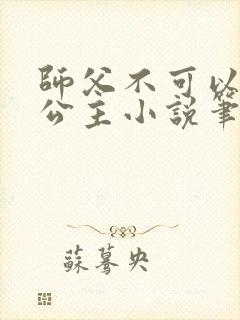 師父不可以
公主小說筆
蘇驀央